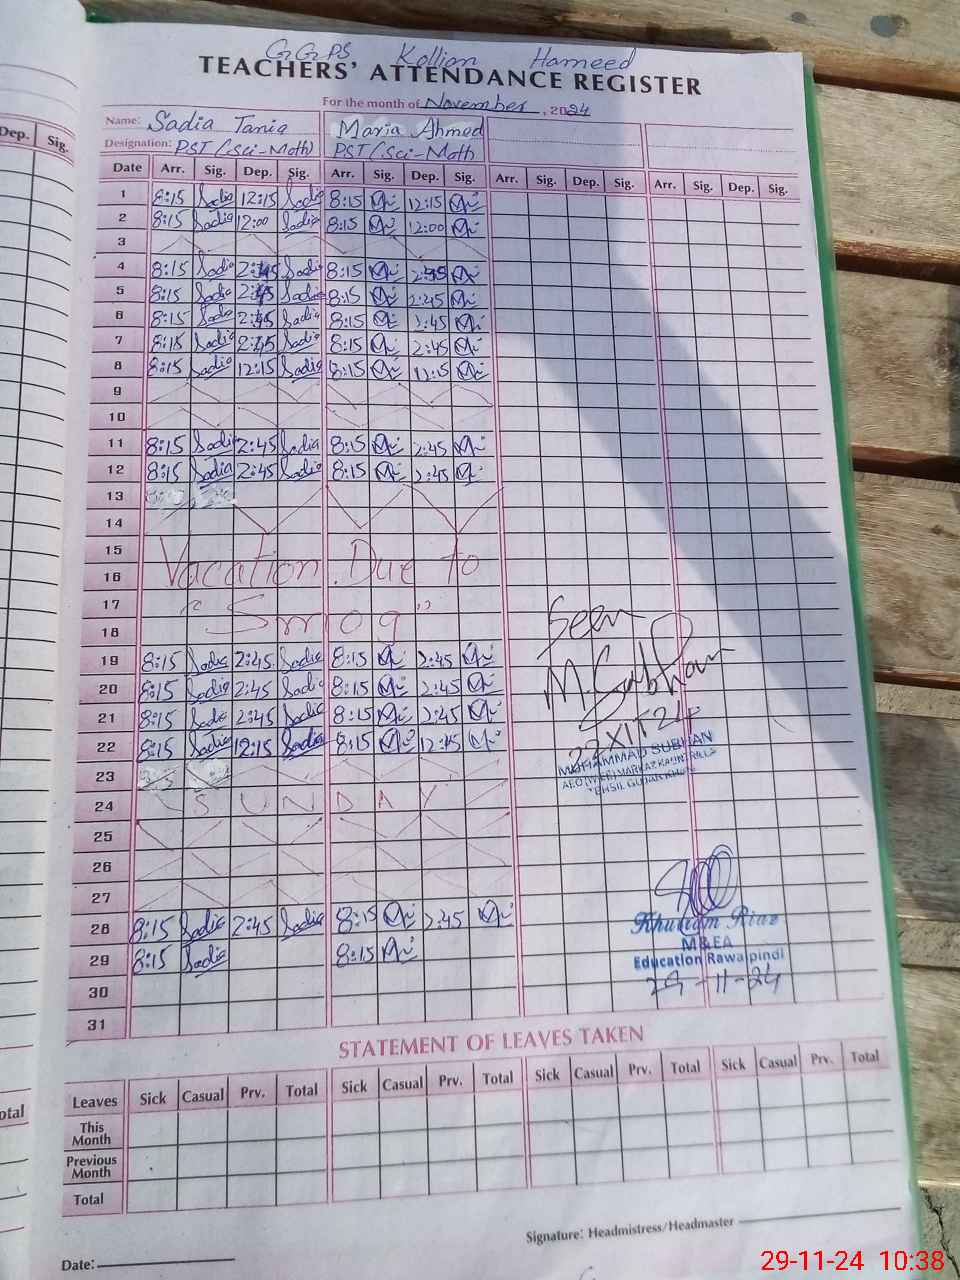 GGPS Kollian Hameed
TEACHERS' ATTENDANCE REGISTER
For the month of November, 2024
Name: Sadia Tania Maria Ahmed
Designation: PST (Sci-Math) PST (Sci-Math
Dep. Sig.
Date Arr. Sig. Dep. Sig. Arr. Sig. Dep. Sig. Arr. Sig. Dep. Sig. Arr. Sig. Dep. Sig.
1 8:15 Sadia 12:15 Sadia 8:15 12:15
2 8:15 Sadia 12:00 Sadia 8:15 12:00
3
4 8:15 Sadia 2:45 Sadia 8:15 2:45
5 8:15 Sadia 2:45 Sadia 8:15 2:45
6 8:15 Sadia 2:45 Sadia 8:15 2:45
7 8:15 Sadia 2:45 Sadia 8:15 2:45
8 8:15 Sadia 12:15 Sadia 8:15 12:15
9
10
11 8:15 Sadia 2:45 Sadia 8:15 2:45
12 8:15 Sadia 2:45 Sadia 8:15 2:45
13
14
15
Vacation Due to
16
17
"Smog"
18
Seen
19 8:15 Sadia 2:45 Sadia 8:15 2:45
20 8:15 Sadia 2:45 Sadia 8:15 2:45
M. Subhan
21 8:15 Sadia 2:45 Sadia 8:15 2:45
22 8:15 Sadia 12:15 Sadia 8:15 12:15
MUHAMMAD SUBHAN
23
TEHSIL GUJAR KHAN
24 SUNDAY
25
26
27
28 8:15 Sadia 2:45 Sadia 8:15 2:45
Khurram Riaz
29 8:15 Sadia 8:15
M&EA
Education Rawalpindi
29-11-24
30
31
STATEMENT OF LEAVES TAKEN
Leaves Sick Casual Prv. Total Sick Casual Prv. Total Sick Casual Prv. Total Sick Casual Prv. Total
This Month
Previous Month
Total
Signature: Headmistress/Headmaster
Date:
29-11-24 10:38